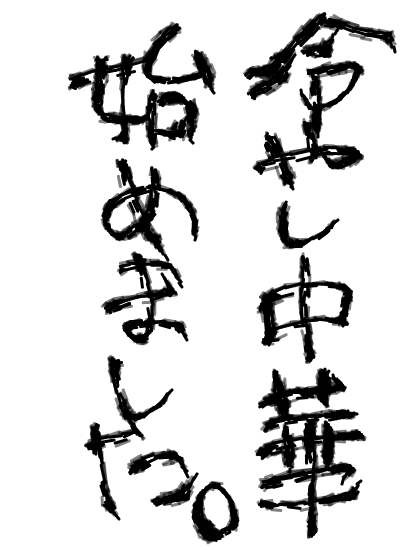 冷やし中華
始めました。